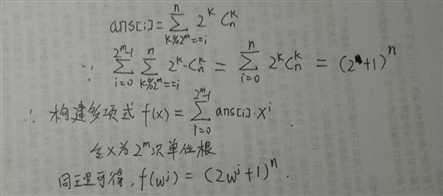 ans[i] = ∑_{k%2^m==i}^{n} 2^k C_n^k
∵ ∑_{i=0}^{2^m-1} ∑_{k%2^m==i}^{n} 2^k·C_n^k = ∑_{i=0}^{n} 2^k C_n^k = (2+1)^n
∴ 构建多项式 f(x) = ∑_{i=0}^{2^m-1} ans[i]·x^i
令x为2^m次单位根
同理可得, f(w^i) = (2w^i+1)^n.